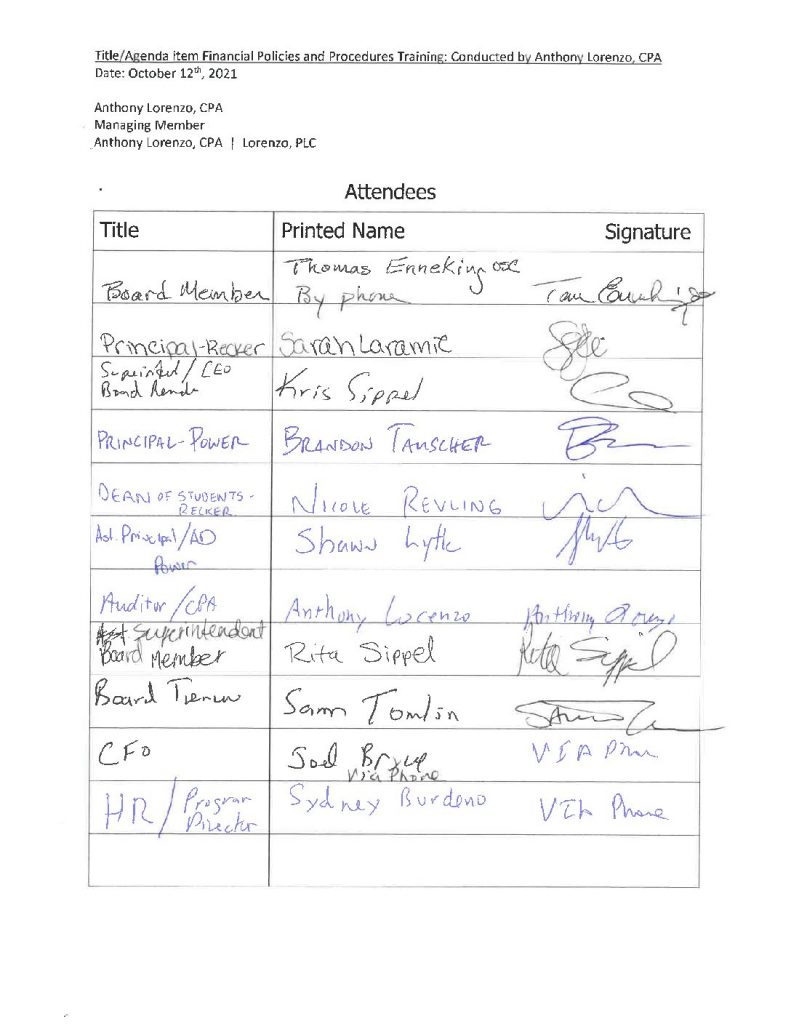 Title/Agenda item Financial Policies and Procedures Training: Conducted by Anthony Lorenzo, CPA
Date: October 12th, 2021
Anthony Lorenzo, CPA
Managing Member
Anthony Lorenzo, CPA | Lorenzo, PLC
Attendees
Title Printed Name Signature
Thomas Enneking OSC
Board Member By phone
Principal-Recker Sarah Laramie
/ CEO
Kris Sippel
PRINCIPAL-POWER BRANDON TAUSCHER
DEAN OF STUDENTS -
RECKER NICOLE REVLING
Ast. Principal/AD Shawn Lytle
Power
Auditor/CPA Anthony Lorenzo
Asst Superintendent
Board Member Rita Sippel Rita Sippel
Board Sam Tomlin
CFO Joel VIA
Via Phone
HR/Program Sydney Burdeno VIA Phone
Director